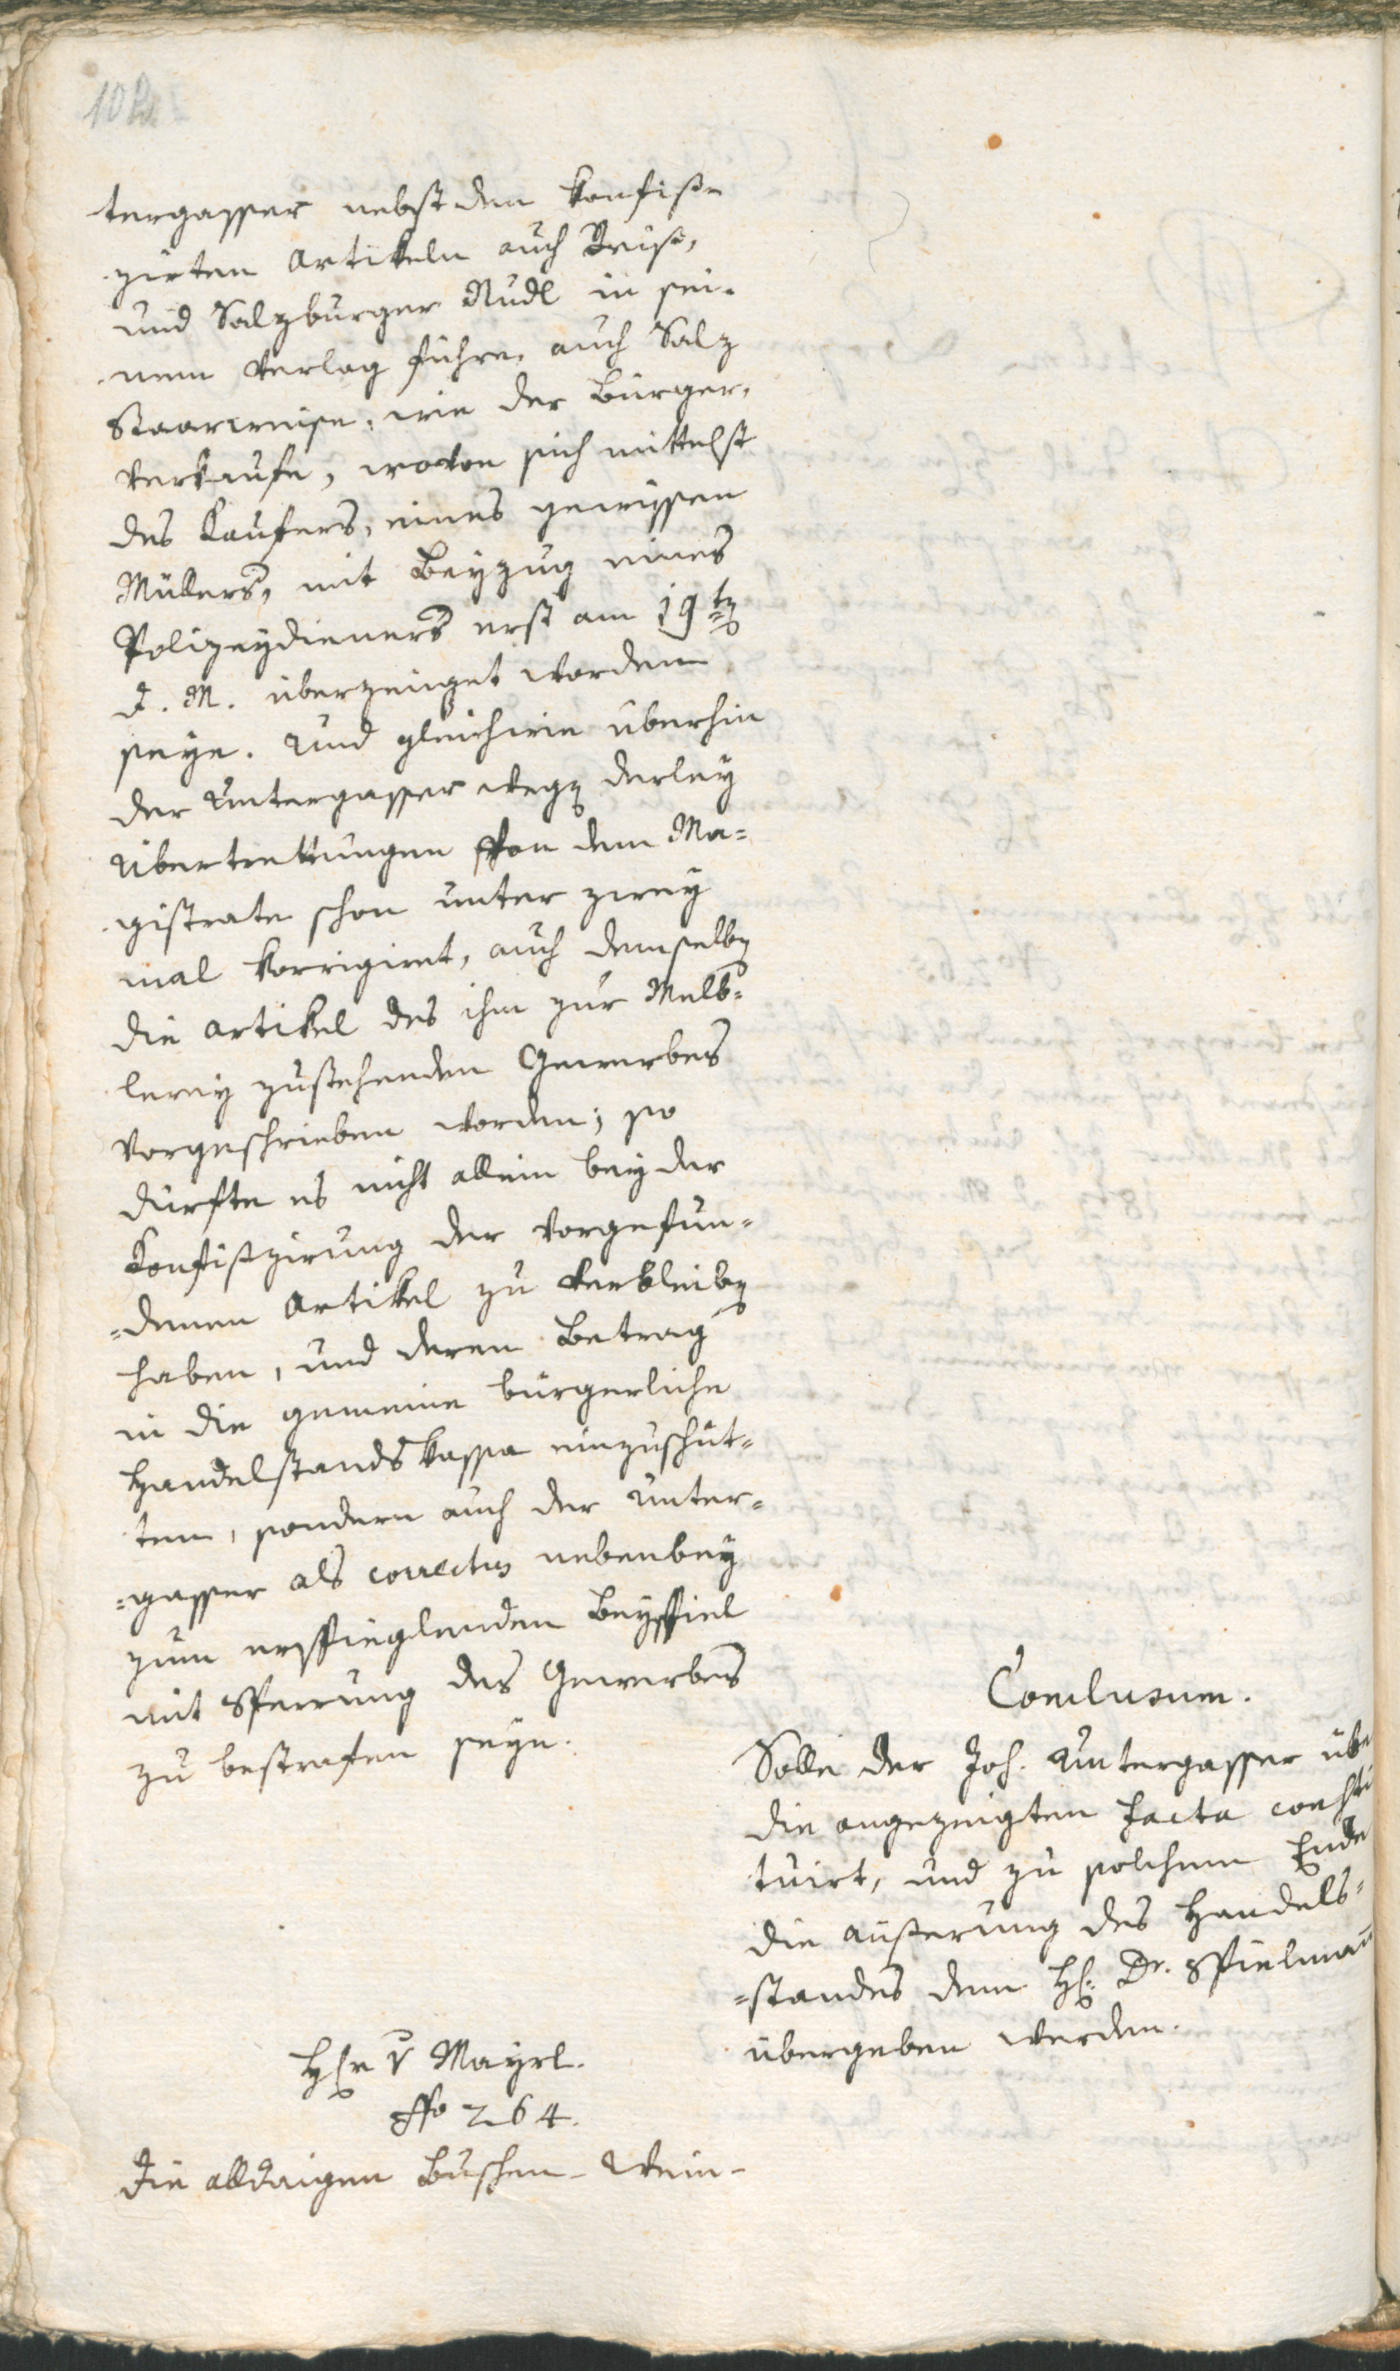 102
tergasser nebst den konfis¬
zirten Artikeln auch Reise,
und Salzburger Nudl in sei¬
nem Verlag führe, auch Salz
Staarweise, wie der Bürger,
verkaufe, wovon sich mittelst
des Kaufers, eines gewissen
Müllers, mit Beyzug eines
Polizeydieners erst am 19ten
d. M. überzeuget worden
seye. Und gleichwie überhin
der Untergasser wegen derley
Übertrettungen von dem Ma¬
gistrate schon unter zwey
mal korrigiret, auch demselben
die Artikel des ihm zur Melb¬
lerey zustehenden Gewerbes
vorgeschrieben worden; so
dürfte es nicht allein bey der
Konfiszirung der vorgefun¬
denen Artikel zu verbleiben
haben, und deren Betrag
in die gemeine bürgerliche
Handelstandskassa einzuschüt¬
ten, sondern auch der Unter¬
gasser als correctus nebenbey
zum erspieglenden Beyspiel
mit Sperrung des Gewerbes
zu bestrafen seye.
Conclusum.
Solle der Joh. Untergasser übe
die angezeigten Facta consti
tuirt, und zu solchem Ende
die äusserung des Handels¬
standes dem H. Dr. Spielman
übergeben werden.
Herr v Mayrl.
No 264.
Die alldaigen Buschen-Wein-